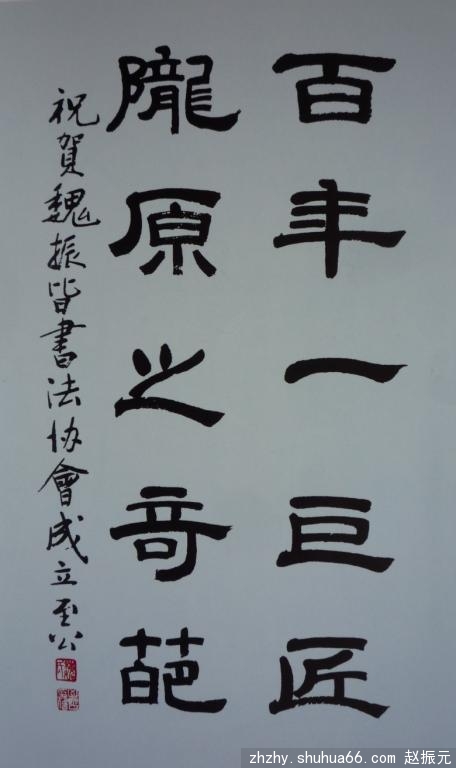 百年一巨匠
隴原之奇葩
祝賀魏振皆書法协會成立 至公
zhzhy.shuhua66.com 赵振元